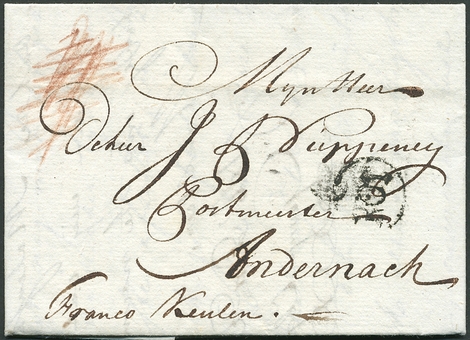 Mijn Heer
De heer J B Nüppeney
Postmeester
Andernach
Franco Keulen.